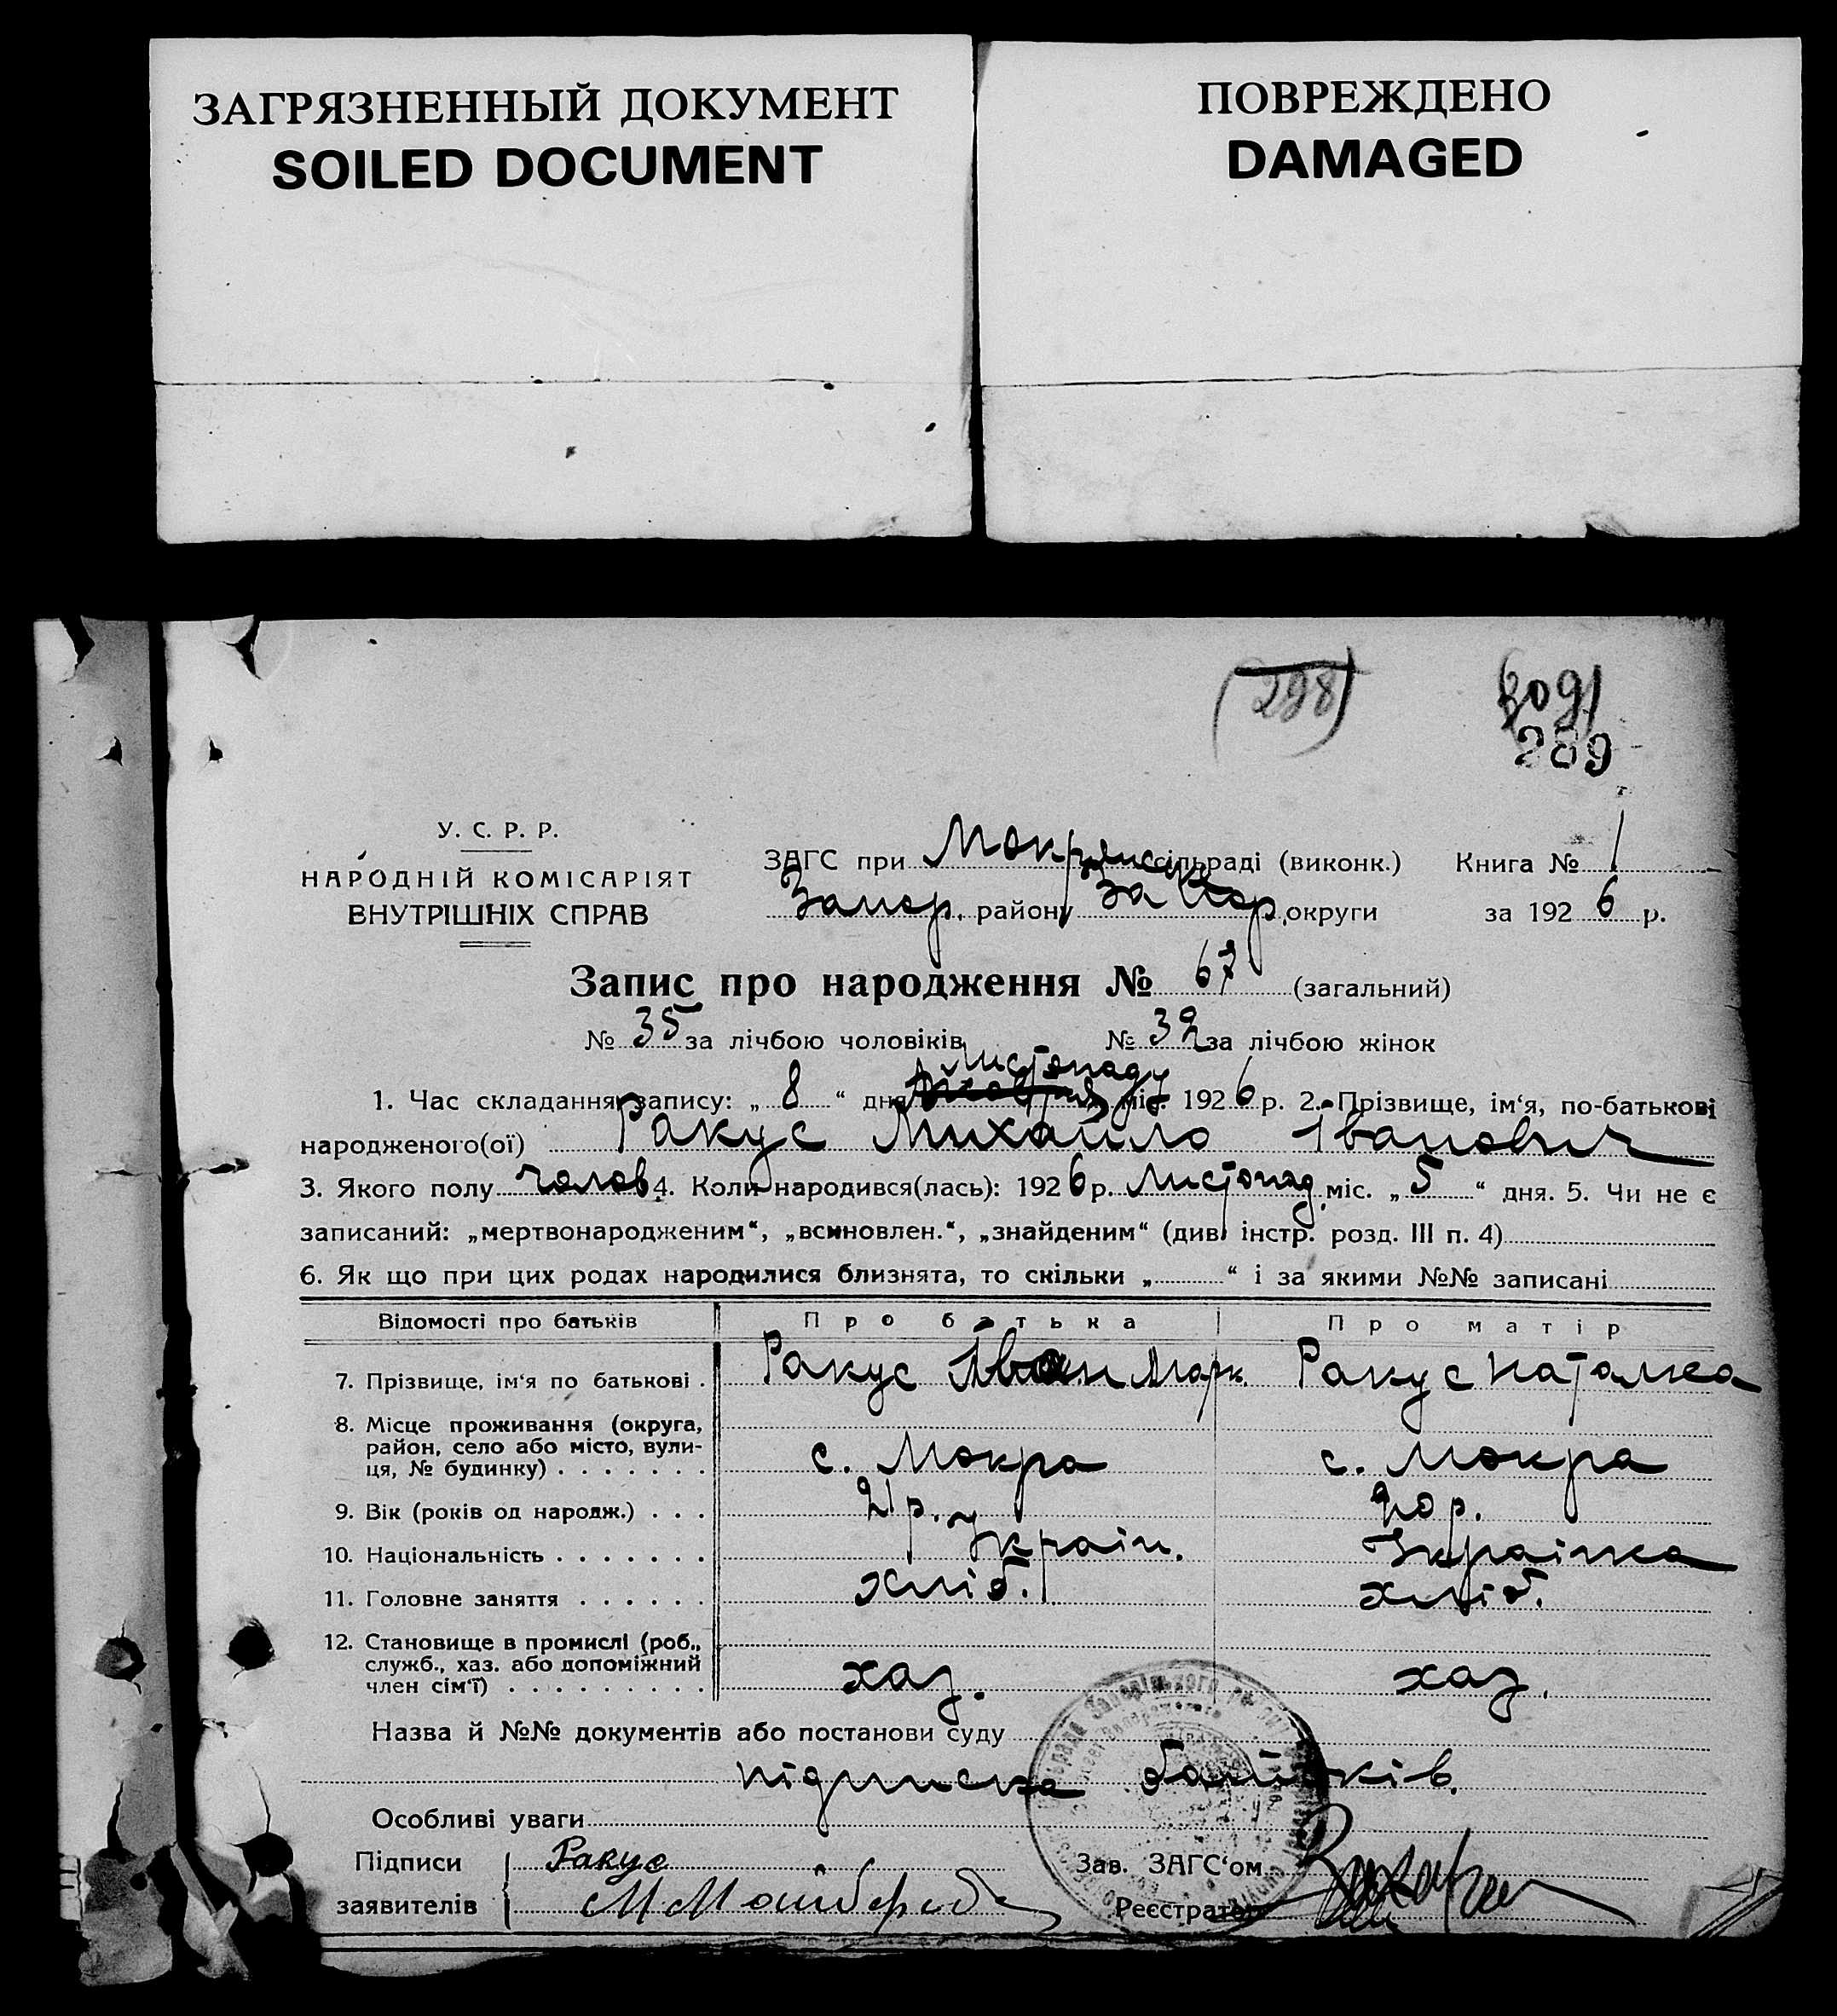 ЗАГРЯЗНЕННЫЙ ДОКУМЕНТ
SOILED DOCUMENT
ПОВРЕЖДЕНО
DAMAGED
(298)
289
У. С. Р. Р.
НАРОДНІЙ КОМІСАРІЯТ
ВНУТРІШНІХ СПРАВ
ЗАГС при Мокрянск сільраді (виконк.) Книга № 1
Запор. району Запор. округи за 1926 р.
Запис про народження № 67 (загальний)
№ 35 за лічбою чоловіків № 32 за лічбою жінок
листопаду
1. Час складання запису: „ 8 “ дня Жовтня міс. 1926 р. 2. Прізвище, ім‘я, по-батькові
народженого(ої) Ракус Михайло Іванович
3. Якого полу чолов 4. Коли народився(лась): 1926 р. Листопад. міс. „ 5 “ дня. 5. Чи не є
записаний: „мертвонародженим“, „всиновлен.“, „знайденим“ (див. інстр. розд. III п. 4)
6. Як що при цих родах народилися близнята, то скільки „ “ і за якими №№ записані
Відомості про батьків Про батька Про матір
7. Прізвище, ім‘я по батькові . Ракус Іван Марк. Ракус Наталка
8. Місце проживання (округа,
район, село або місто, вули-
ця, № будинку) . . . . . . . с. Мокра с. Мокра
9. Вік (років од народж.) . . . 21 р. 20 р.
10. Національність . . . . . . . Україн. Українка
11. Головне заняття . . . . . . хліб. хліб.
12. Становище в промислі (роб.,
служб., хаз. або допоміжний
член сім‘ї) . . . . . . . . . хаз. хаз.
Назва й №№ документів або постанови суду
підписка батьків.
Особливі уваги
Підписи Ракус Зав. ЗАГС‘ом
заявителів Реєстратор